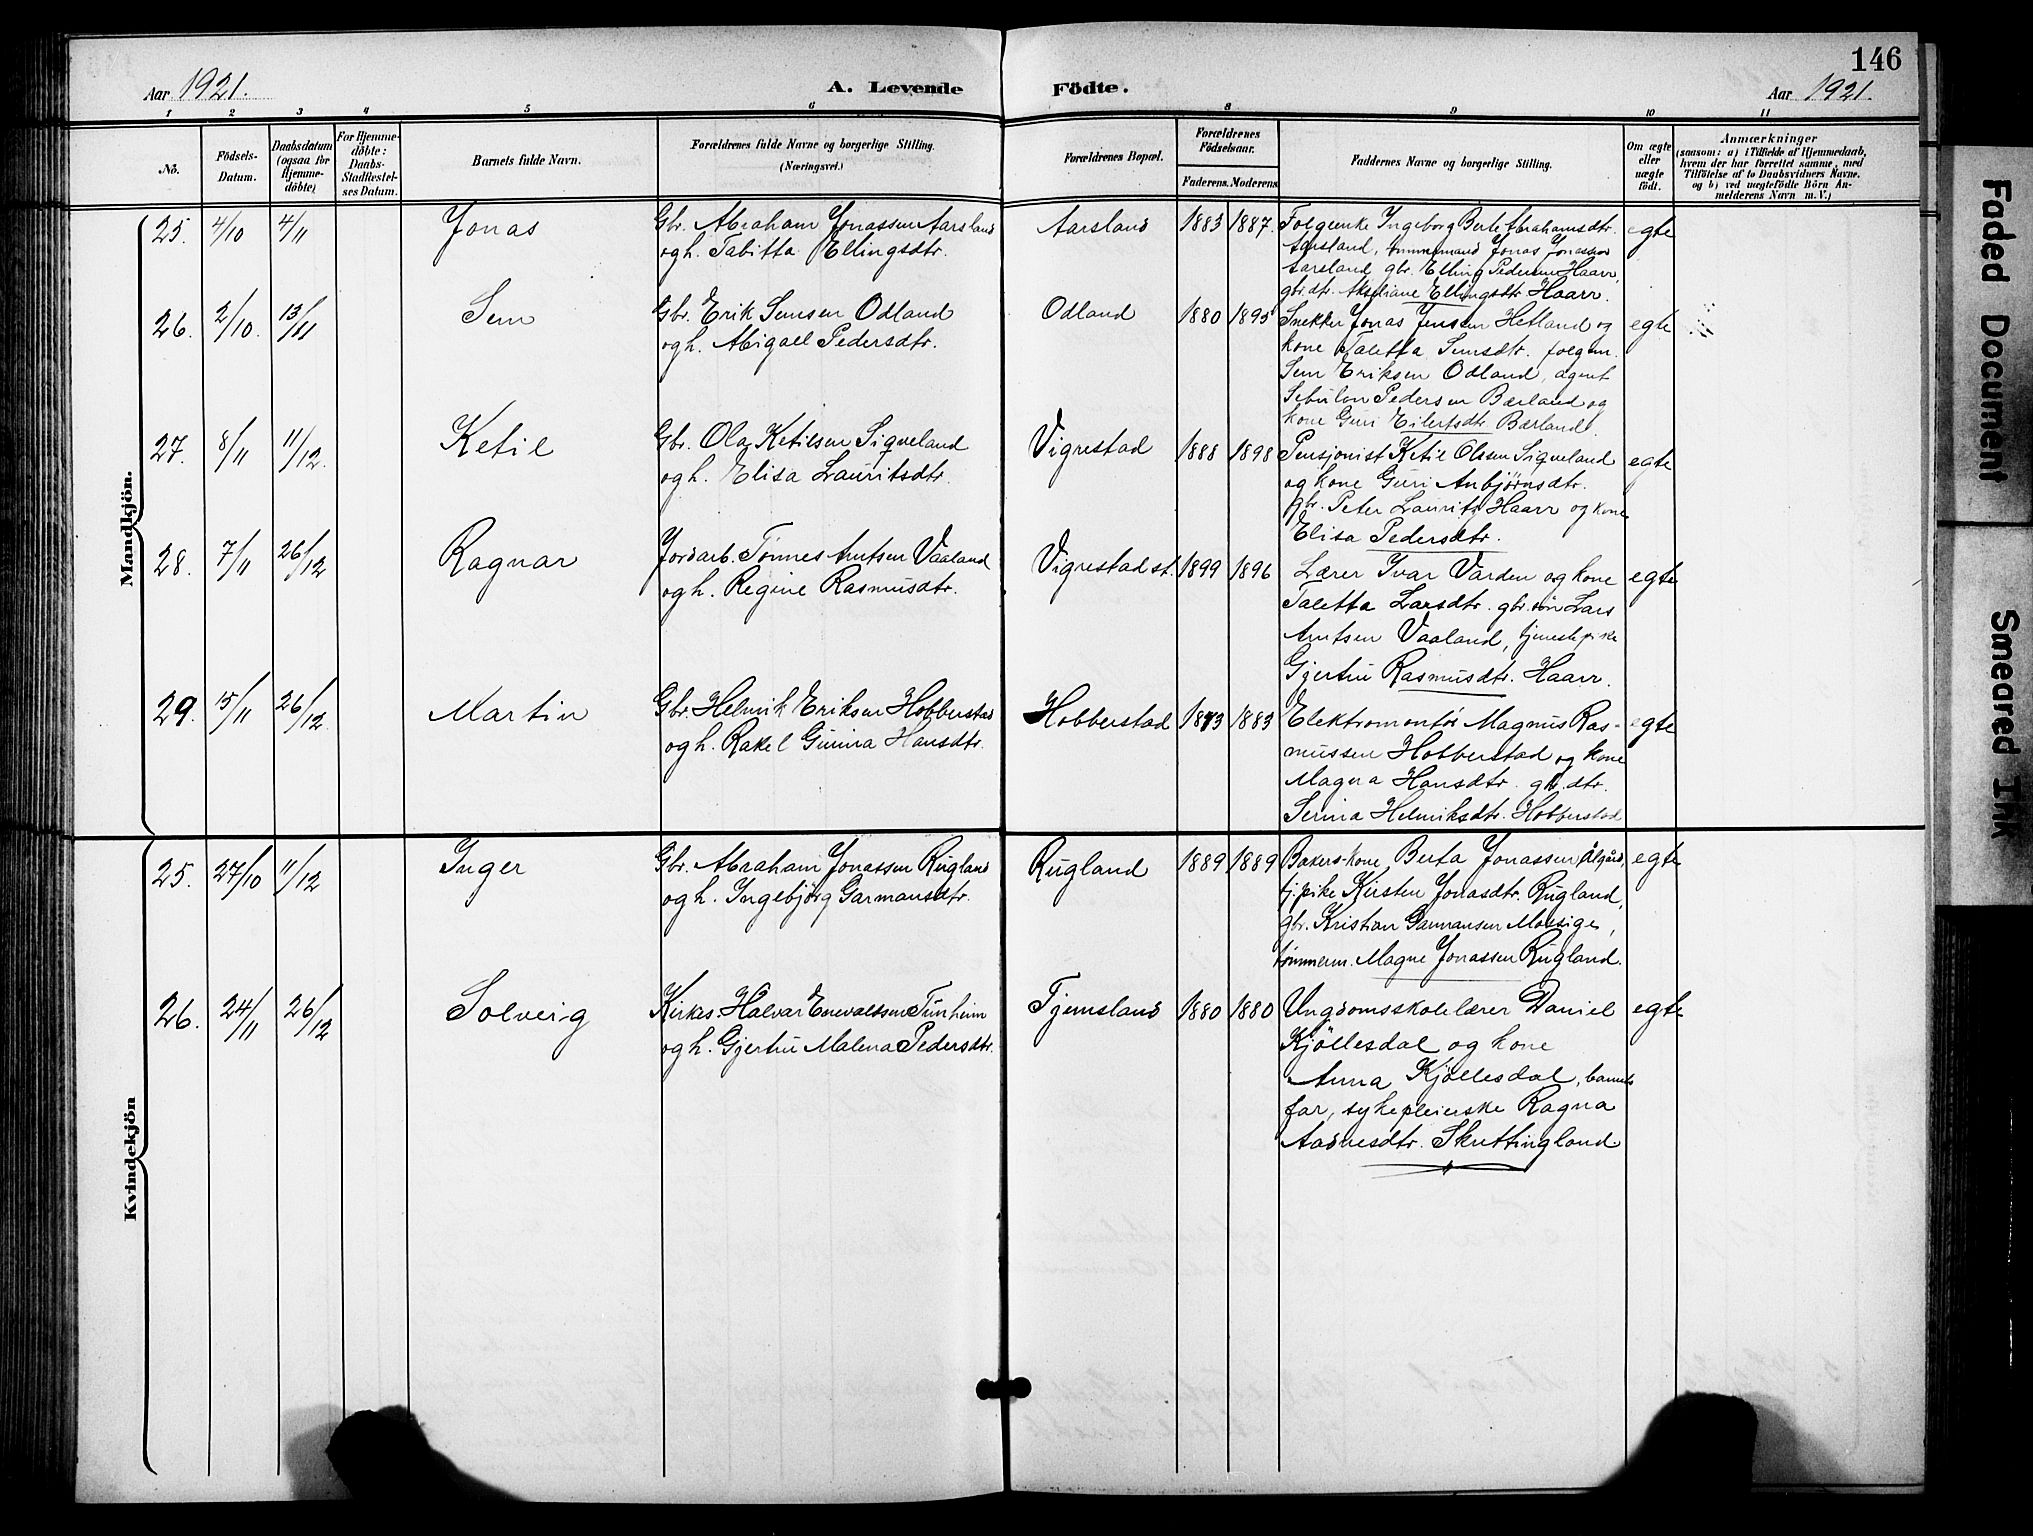 146
Aar 1921. A. Levende Födte. Aar 1921.
1 2 3 4 5 6 8 9 10 11
No. Födsels-Datum. Daabsdatum (ogsaa for Hjemme-döbte) For Hjemme-döbte: Daabs-Stadfæstel-ses Datum. Barnets fulde Navn. Forældrenes fulde Navne og borgerlige Stilling. (Næringsvei.) Forældrenes Bopæl. Forældrenes Födselsaar. Faderens. Moderens. Faddernes Navne og borgerlige Stilling. Om ægte eller uægte födt. Anmærkninger
(saasom: a) i Tilfælde af Hjemmedaab,
hvem der har forrettet samme, med
Tilföielse af to Daabsvidners Navne,
og b) ved uægtefödte Börn An-
melderens Navn m. V.)
Mandkjön.
25. 4/10 4/11 Jonas Gbr. Abraham Jonassen Aarsland Aarsland 1883 1887. Folgeenke Ingeborg Berte Abrahamsdtr. egte
og h. Tabitta Ellingsdtr. Aarsland, tømmermand Jonas Jonassen
Aarsland, gbr. Elling Pedersen Haarr,
gbr.dtr. Akseliane Ellingsdtr. Haarr.
26. 2/10. 13/11 Sem Gbr. Erik Semsen Odland Odland 1880 1895 Snekker Jonas Jensen Hetland og egte
og h. Abigael Pedersdtr. kone Taletta Semsdtr. folgem.
Sem Eriksen Odland, agent
Sebulon Pedersen Bærland og
kone Guri Eilertsdtr. Bærland.
27. 8/11 11/12. Ketil Gbr. Ola Ketilsen Siqveland Vigrestad 1888 1898 Pensjonist Ketil Olsen Siqveland egte
og h. Elisa Lauritsdtr. og kone Guri Anbjørnsdtr.
gbr. Peter Laurits Haarr og kone
Elisa Pedersdtr.
28. 7/11 26/12 Ragnar Jordarb. Tønnes Amtsen Vaaland Vigrestad st. 1899 1896 Lærer Ivar Varden og kone egte
og h. Regine Rasmusdtr. Taletta Larsdtr. gbr. søn Lars
Amtsen Vaaland, tjenestepike
Gjertru Rasmusdtr. Haarr.
29. 15/11 26/12. Martin Gbr. Helmik Eriksen Hobberstad Hobberstad 1873 1883 Elektromontør Magnus Ras- egte
og h. Rakel Gunna Hansdtr. mussen Hobberstad og kone
Magna Hansdtr. gbr. dtr.
Serina Helmiksdtr. Hobberstad
Kvindekjön
25. 27/10 11/12 Inger Gbr. Abraham Jonassen Rugland Rugland 1889 1889 Bakers kone Berta Jonassen, Ålgård, egte
og h. Ingebjørg Garmansdtr. tj.pike Kirsten Jonasdtr. Rugland,
gbr. Kristian Garmansen Motsige,
tømmerm. Magne Jonassen Rugland.
26. 24/11 26/12 Solveig Kirkes. Halvar Enevaldsen Tunheim Tjemsland 1880 1880 Ungdomsskolelærer Daniel egte
og h. Gjertru Malena Pedersdtr. Kjöllesdal og kone
Anna Kjöllesdal, barnets
far, sykepleierske Ragna
Aadnesdtr. Skrettingland
Faded Document
Smeared Ink